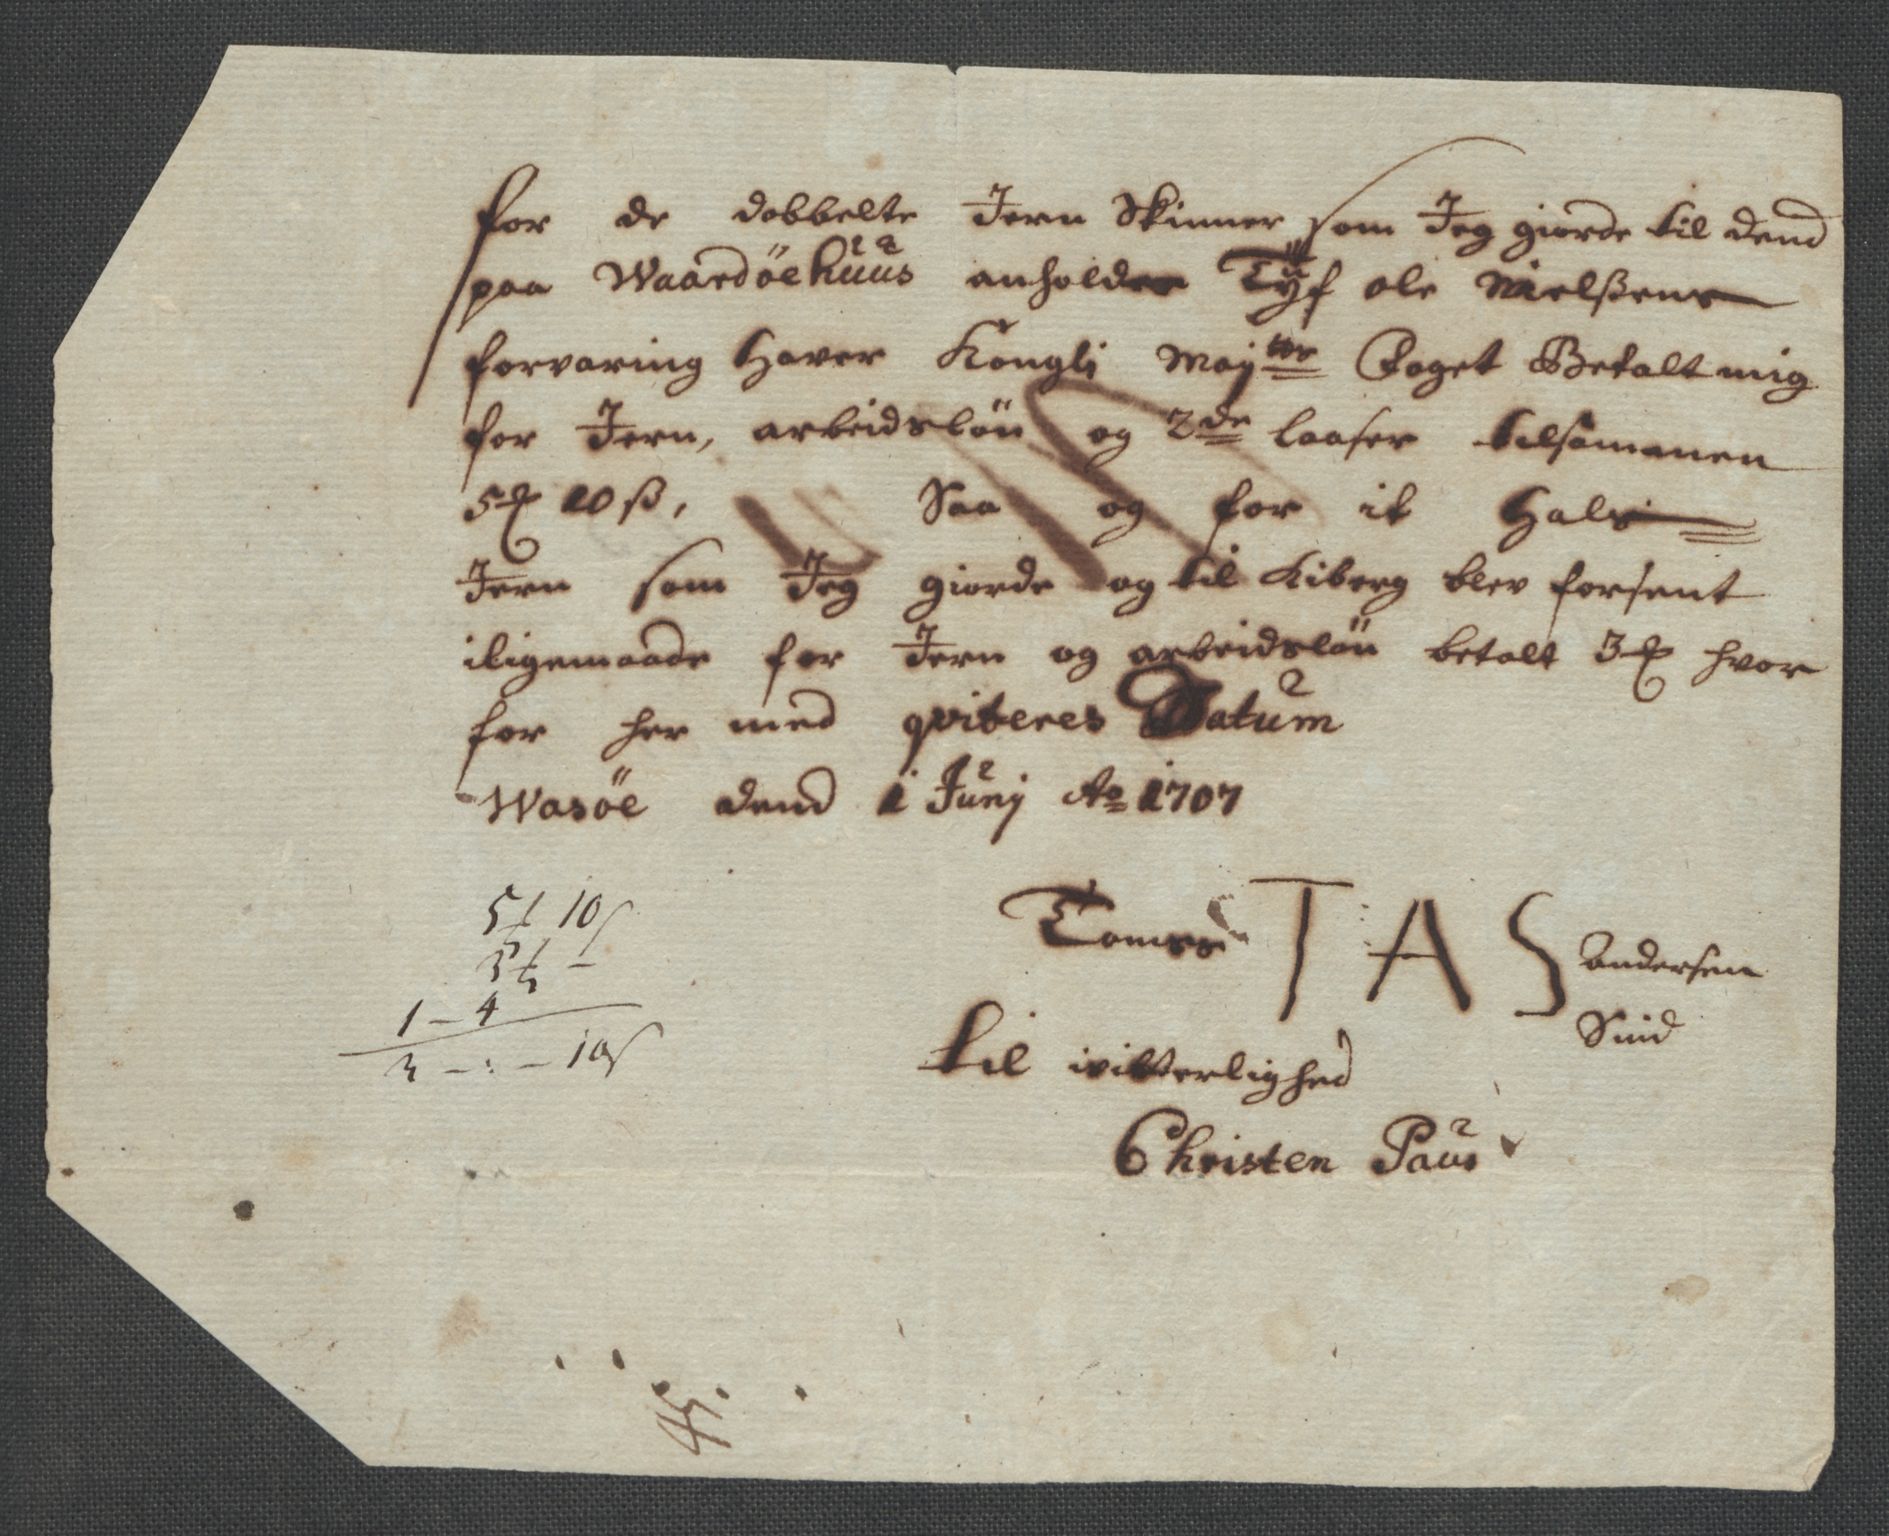 for de dobbelte Jern Skinner som Jeg giorde til dend
paa Waardöehuus anholder Tyf ole Nielsens
forvaring Haver Kongli May:ts Foget Betalt mig
for Jern, arbeidslön og 2de laaser tilsammen
5 10 ß, Saa og for it Hals
Jern som Jeg giorde og til Kiberg blev forsent
iligemaade for Jern og arbeidslön betalt 3 hvor
for her med qviteres Datum
Wasöe dend 1 Junij Ao 1707
Tomes T A S Andersen
Smid
til vitterlighed
Christen Paus
5 10
3 –
1 – 4
2 – : – 10